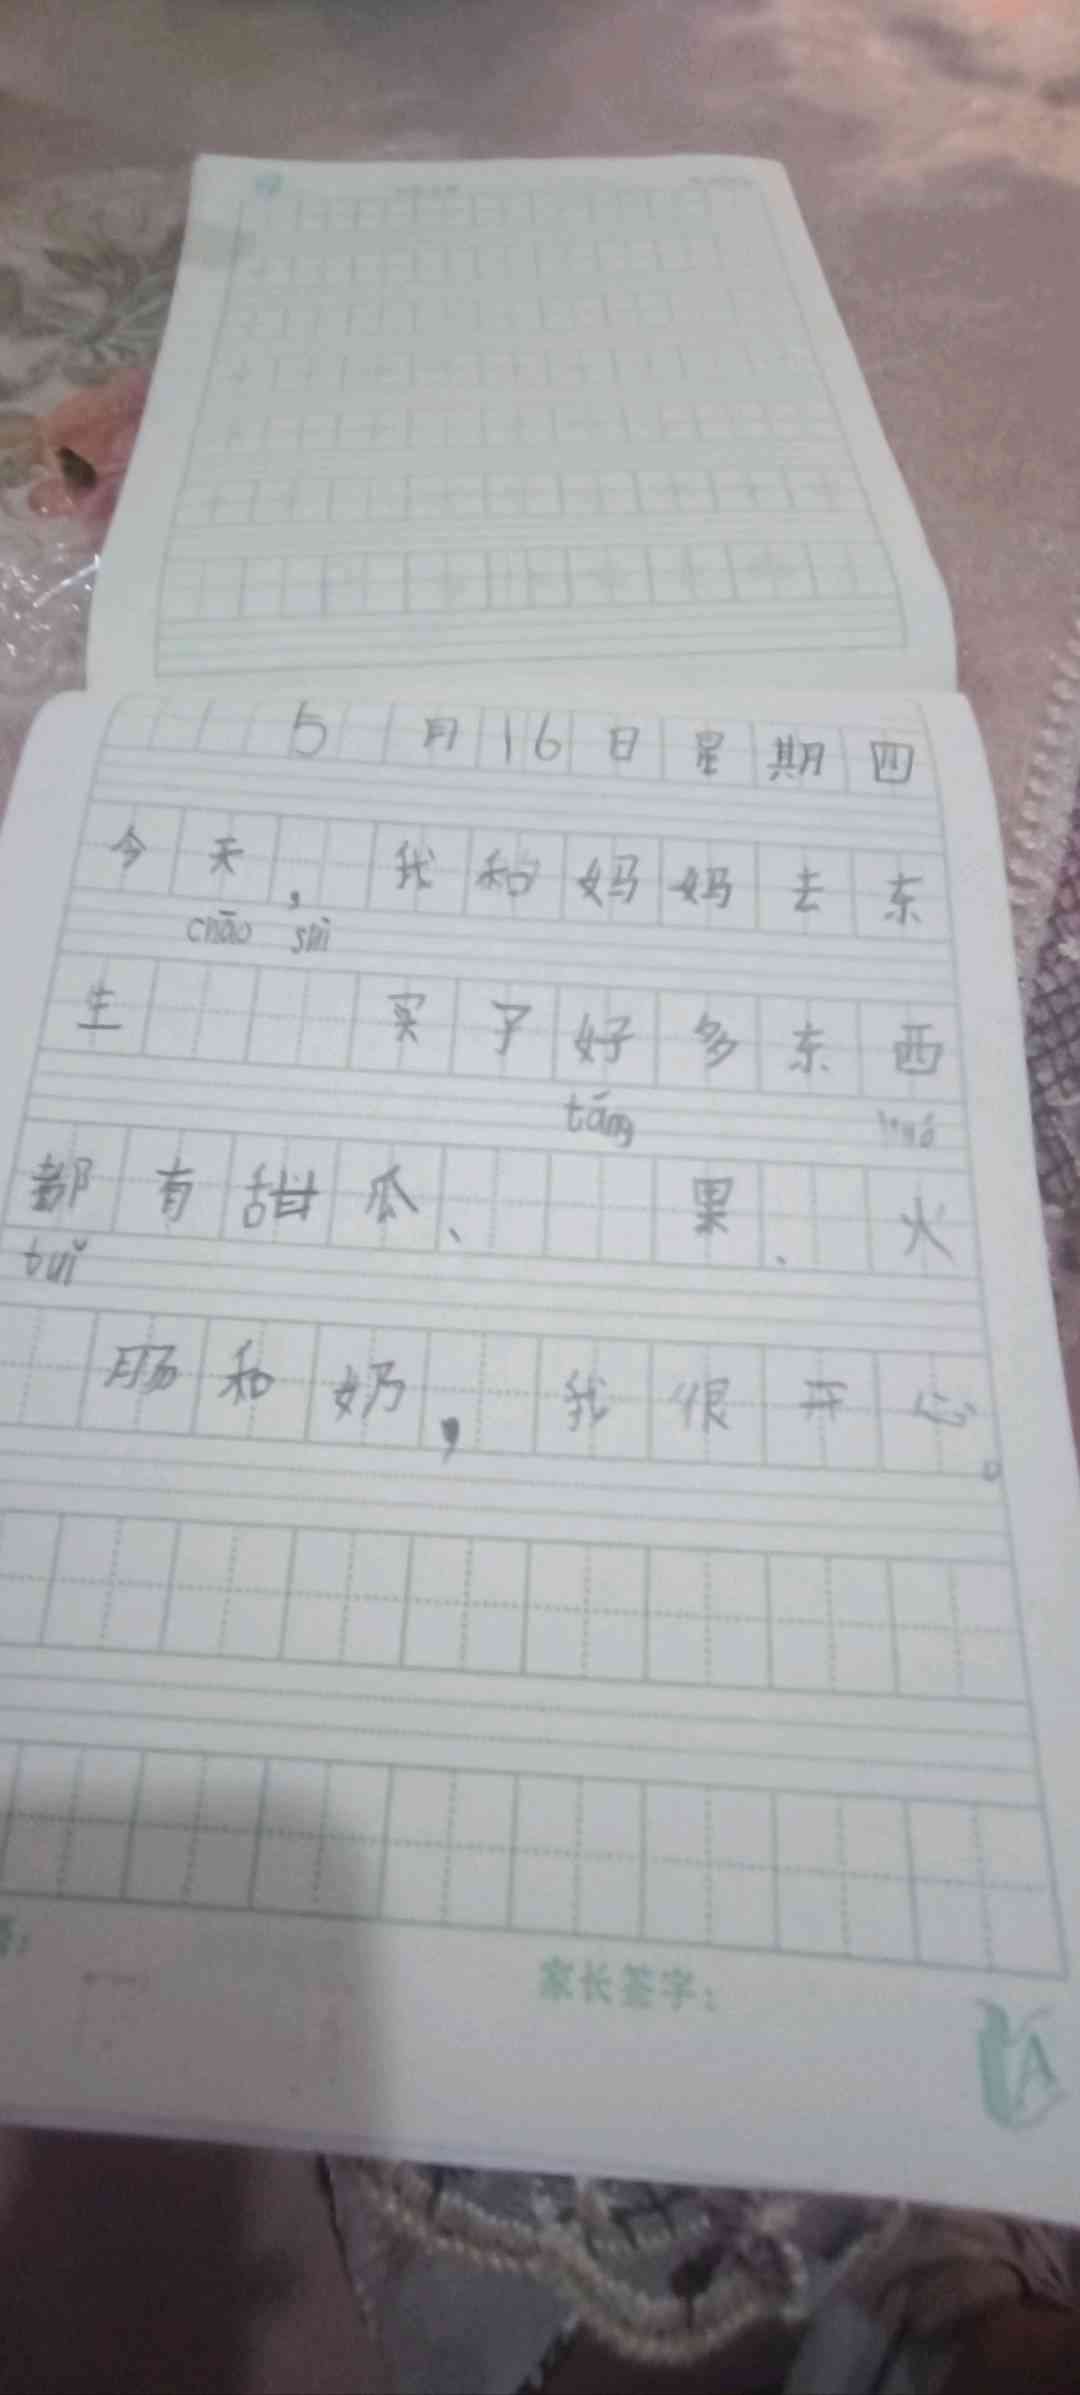 5月16日星期四
今天，我和妈妈去东
chāo shì
生 买了好多东西
táng
都有甜瓜、 果、火
tuǐ
肠和奶，我很开心。
家长签字：